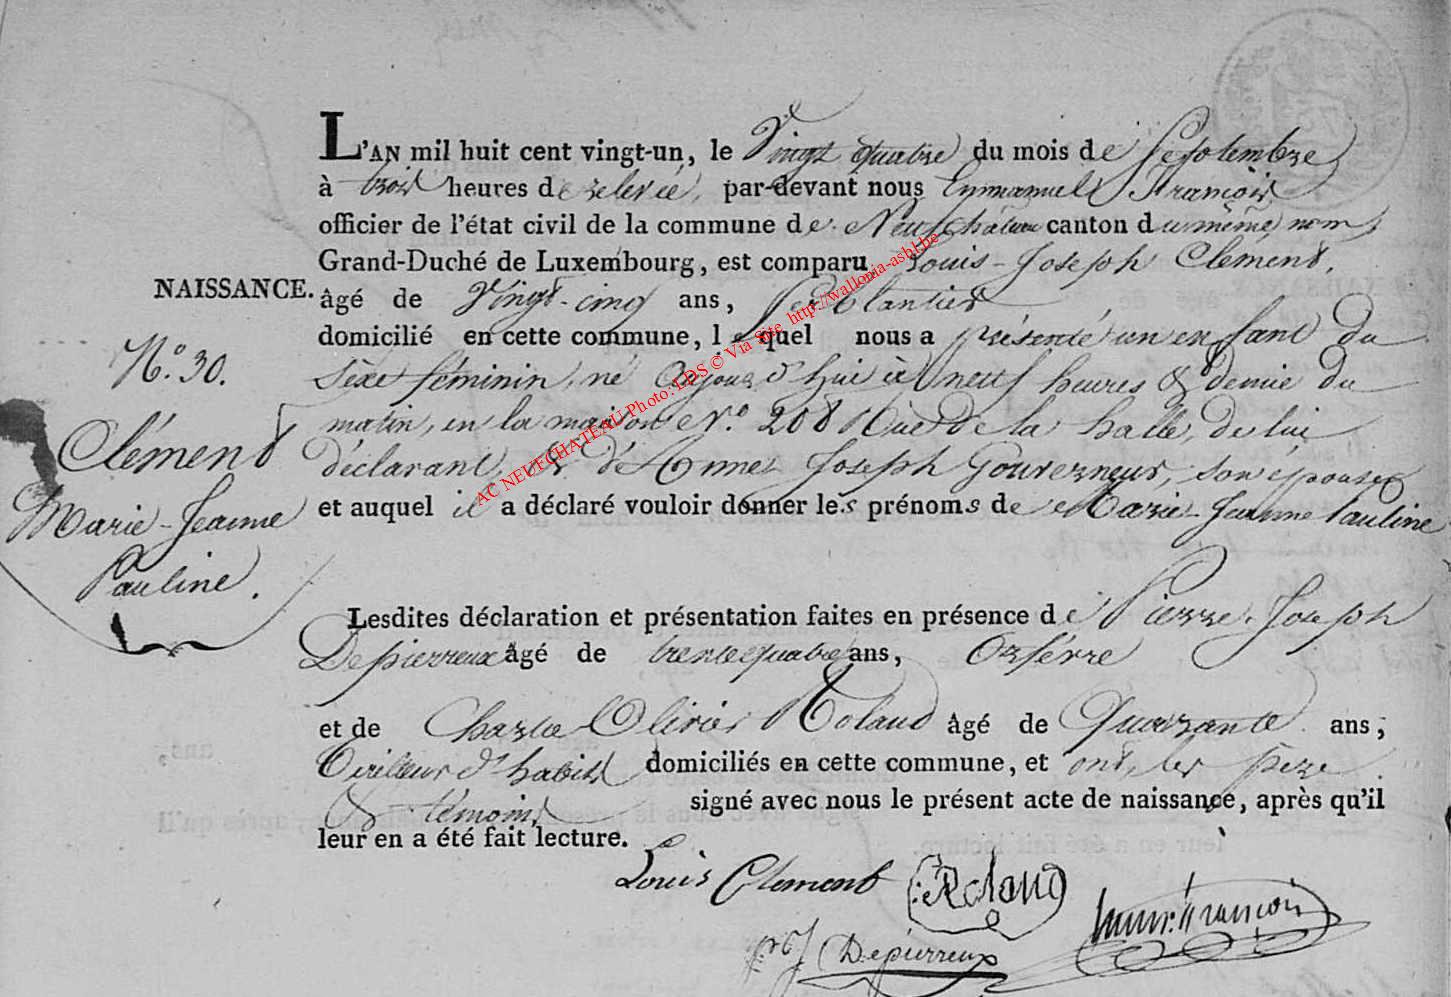 L'AN mil huit cent vingt-un, le Vingt quatre du mois de Septembre
à trois heures de relevée, par-devant nous Emmanuel François
officier de l'état civil de la commune de Neufchâteau canton du même nom
Grand-Duché de Luxembourg, est comparu Louis-Joseph Clément,
NAISSANCE.
âgé de Vingt-cinq ans, ferblantier
domicilié en cette commune, lequel nous a présenté un enfant du
N.o 30.
Sèxe féminin, né aujourd'hui à neuf heures & demie du
matin, en la maison N.o 208 Rue de la halle, de lui
Clément
Marie-Jeanne
Pauline.
déclarant, & d'Anne Joseph Gouverneur, son épouse
et auquel il a déclaré vouloir donner les prénoms de Marie-Jeanne Pauline
Lesdites déclaration et présentation faites en présence de Pierre-Joseph
Depierreux âgé de trente quatre ans, Orfévre
et de Charle Olivier Roland âgé de Quarante ans,
Tailleur d'habits domiciliés en cette commune, et ont, les pere
& témoins signé avec nous le présent acte de naissance, après qu'il
leur en a été fait lecture.
Louis Clement Roland
Emm. François
Depierreux
AC NEUFCHATEAU Photo: LDS © Via Site http://wallonia-asbl.be